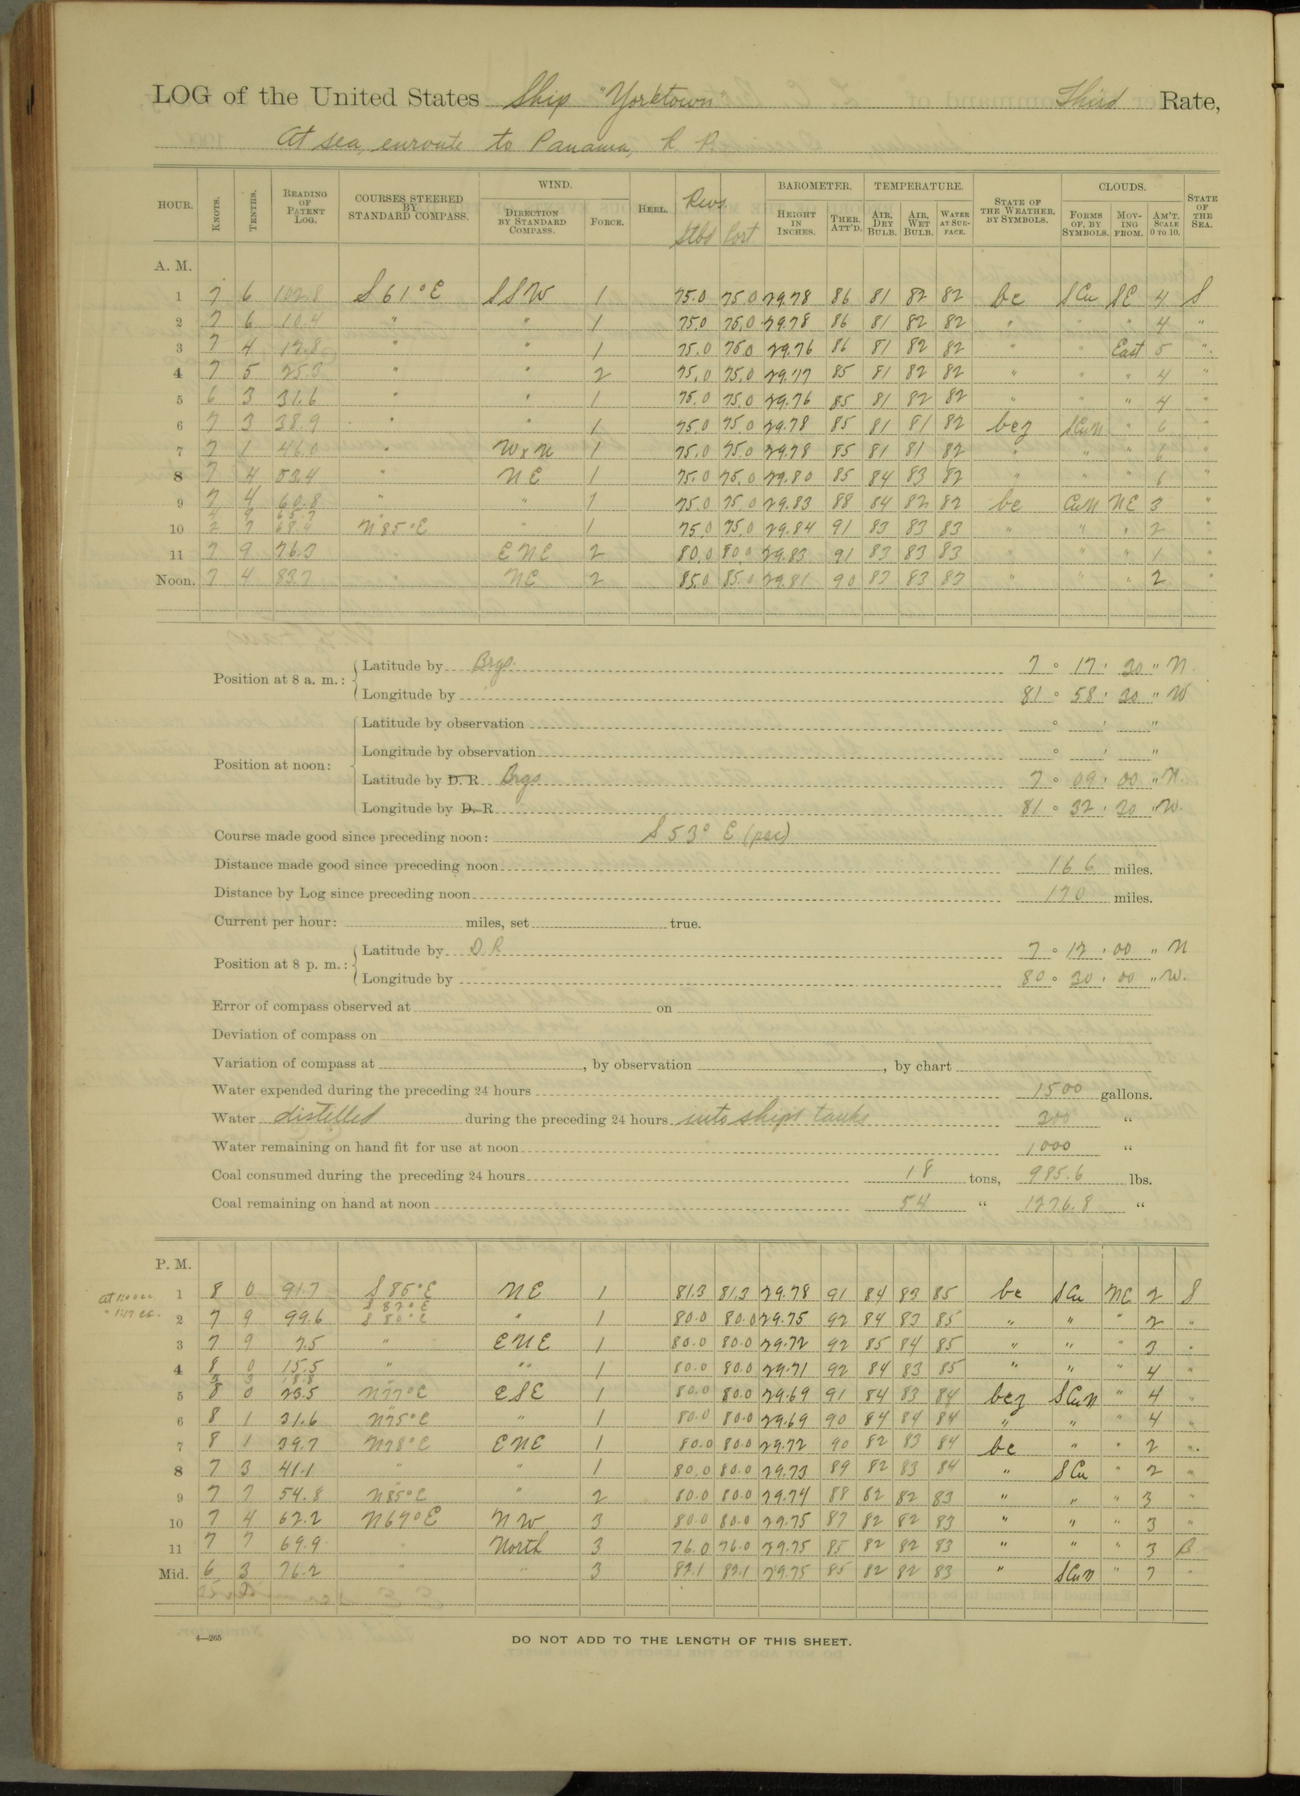 LOG of the United States Ship "Yorktown" Third Rate,
At sea, enroute to Panama, R. P.
HOUR. KNOTS. TENTHS. READING OF PATENT LOG. COURSES STEERED BY STANDARD COMPASS. WIND. DIRECTION BY STANDARD COMPASS. FORCE. HEEL. Revs Stbd Port BAROMETER. HEIGHT IN INCHES. THER. ATT'D. TEMPERATURE. AIR, DRY BULB. AIR, WET BULB. WATER AT SURFACE. STATE OF THE WEATHER, BY SYMBOLS. CLOUDS. FORMS OF, BY SYMBOLS. MOVING FROM. AM'T. SCALE 0 TO 10. STATE OF THE SEA.
A. M.
1 7 6 102.8 S 61° E SSW 1 75.0 75.0 29.78 86 81 82 82 bc SCu SE 4 S
2 7 6 10.4 " " 1 75.0 75.0 29.78 86 81 82 82 " " " 4 "
3 7 4 17.8 " " 1 75.0 75.0 29.76 86 81 82 82 " " East 5 "
4 7 5 25.3 " " 2 75.0 75.0 29.77 85 81 82 82 " " " 4 "
5 6 3 31.6 " " 1 75.0 75.0 29.76 85 81 82 82 " " " 4 "
6 7 3 38.9 " " 1 75.0 75.0 29.78 85 81 81 82 bcz SCuN " 6 "
7 7 1 46.0 " WxN 1 75.0 75.0 29.78 85 81 81 82 " " " 6 "
8 7 4 53.4 " NE 1 75.0 75.0 29.80 85 84 83 82 " " " 6 "
9 7 4 60.8 " " 1 75.0 75.0 29.83 88 84 82 82 bc CuN NE 3 "
10 2 7 68.4 N 85° E " 1 75.0 75.0 29.84 91 83 83 83 " " " 2 "
11 7 9 76.3 ENE 2 80.0 80.0 29.83 91 83 83 83 " " " 1 "
Noon. 7 4 83.7 " NE 2 85.0 85.0 29.81 90 83 83 83 " " " 2 "
Position at 8 a. m.: Latitude by Brgs. 7 ° 17 ' 30 " N.
Longitude by 81 ° 58 ' 30 " W
Position at noon: Latitude by observation ° ' "
Longitude by observation ° ' "
Latitude by D. R Brgs 7 ° 09 ' 00 " N.
Longitude by D. R 81 ° 32 ' 30 " W.
Course made good since preceding noon: S 53° E (per)
Distance made good since preceding noon 166 miles.
Distance by Log since preceding noon 170 miles.
Current per hour: miles, set true.
Position at 8 p. m.: Latitude by D R 7 ° 12 ' 00 " N
Longitude by 80 ° 30 ' 00 " W.
Error of compass observed at on
Deviation of compass on
Variation of compass at , by observation , by chart
Water expended during the preceding 24 hours 1500 gallons.
Water distilled during the preceding 24 hours into ships tanks 300 "
Water remaining on hand fit for use at noon 1000 "
Coal consumed during the preceding 24 hours 18 tons, 985.6 lbs.
Coal remaining on hand at noon 54 " 1276.8 "
P. M.
1 8 0 91.7 S 86° E NE 1 81.3 81.3 29.78 91 84 83 85 bc SCu NE 2 S
S 82° E
2 7 9 99.6 S 80° E " 1 80.0 80.0 29.75 92 84 83 85 " " " 2 "
3 7 9 7.5 " ENE 1 80.0 80.0 29.72 92 85 84 85 " " " 3 "
4 8 0 15.5 " " 1 80.0 80.0 29.71 92 84 83 85 " " " 4 "
3 3 18.8
5 8 0 23.5 N77°E ESE 1 80.0 80.0 29.69 91 84 83 84 bcz SCuN " 4 "
6 8 1 31.6 N75°E " 1 80.0 80.0 29.69 90 84 84 84 " " " 4 "
7 8 1 39.7 N78°E ENE 1 80.0 80.0 29.72 90 82 83 84 bc " " 2 "
8 7 3 47.1 " " 1 80.0 80.0 29.73 89 82 83 84 " SCu " 2 "
9 7 7 54.8 N85°E " 2 80.0 80.0 29.74 88 82 82 83 " " " 3 "
10 7 4 62.2 N67°E NW 3 80.0 80.0 29.75 87 82 82 83 " " " 3 "
11 7 7 69.9 " North 3 76.0 76.0 29.75 85 82 82 83 " " " 3 B
Mid. 6 3 76.2 " " 3 82.1 82.1 29.75 85 82 82 83 " SCuN " 7 "
4—265
DO NOT ADD TO THE LENGTH OF THIS SHEET.